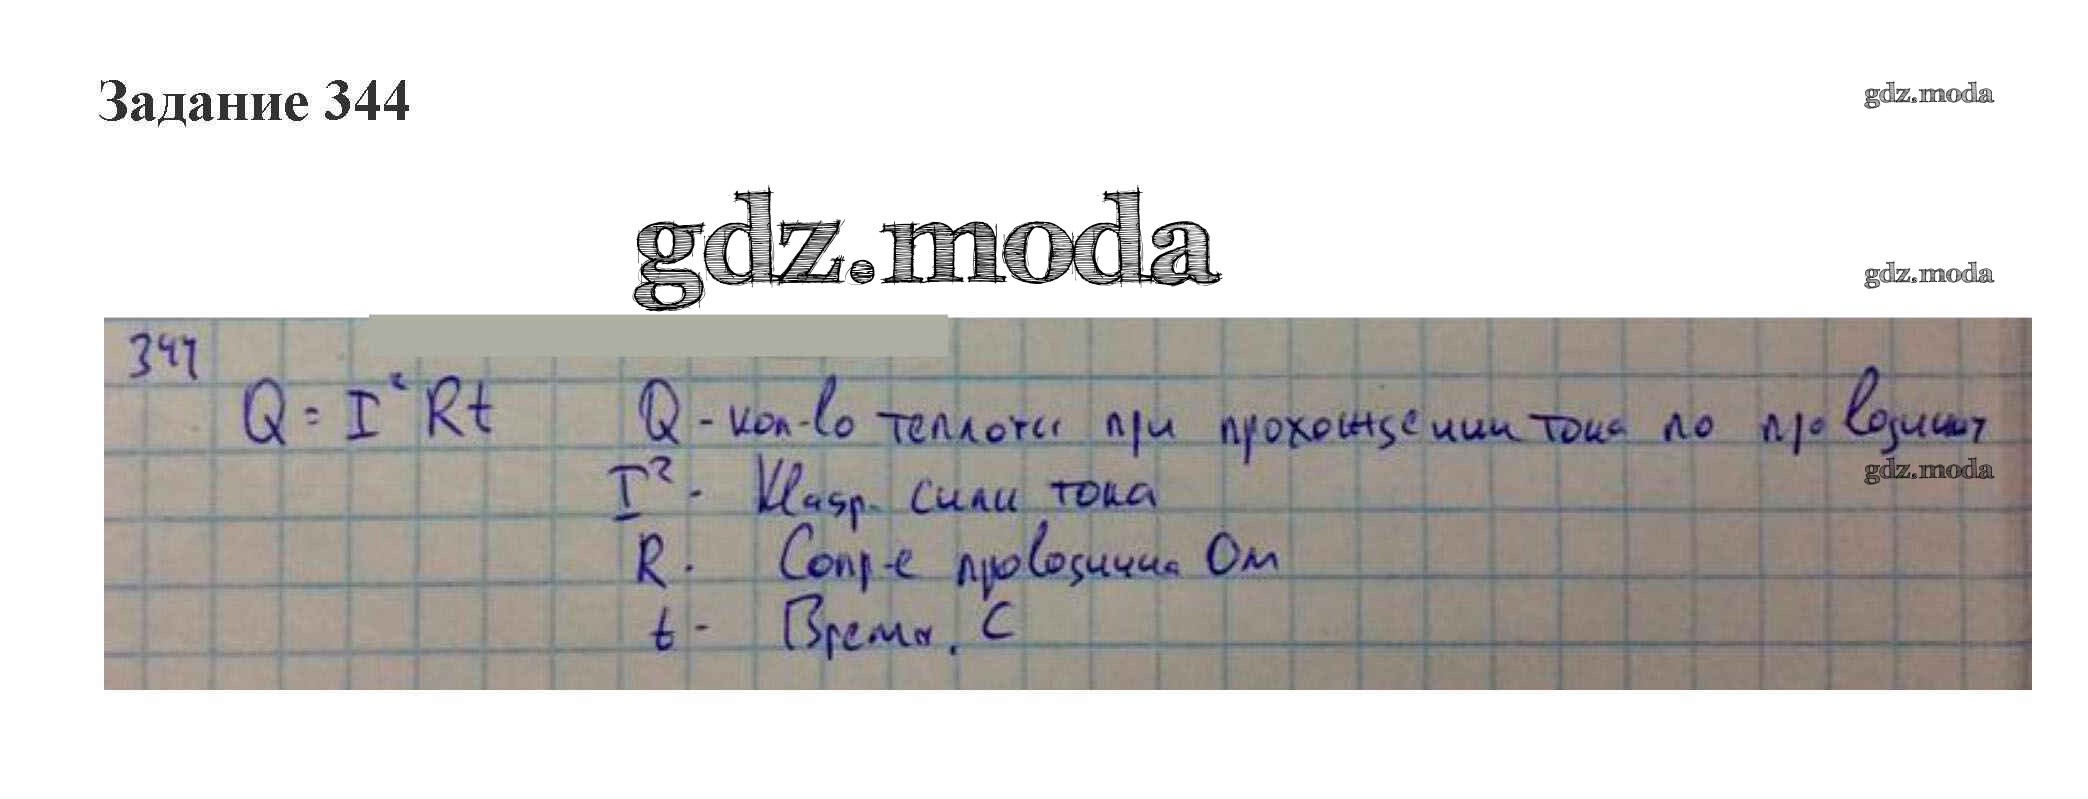 Задание 344
gdz.moda
gdz.moda
gdz.moda
344
Q = I² Rt
Q - кол-во теплоты при прохождении тока по
I² - Квадр. силы тока
gdz.moda
R - Сопр-е проводника Ом
t - Время, С